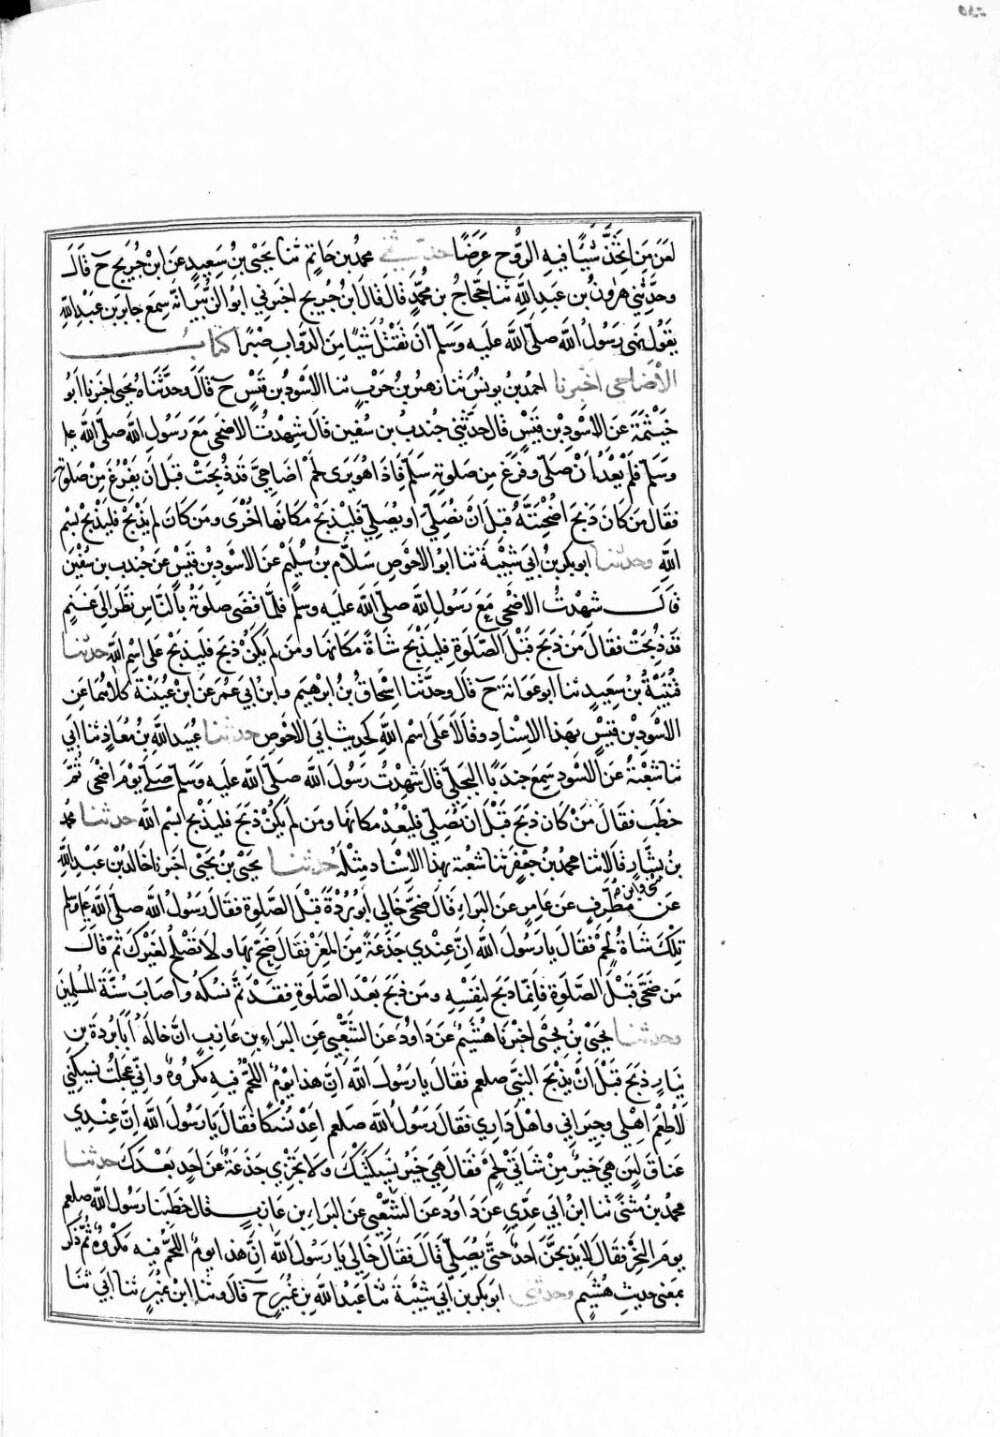 لعن من اتخذ شيئا فيه الروح غرضا حدثني محمد بن حاتم ثنا يحيى بن سعيد عن ابن جريج ح قال
وحدثني هرون بن عبد الله ثنا حجاج بن محمد قال قال ابن جريج اخبرني ابو الزبير انه سمع جابر بن عبد الله
يقول نهى رسول الله صلى الله عليه وسلم ان نقتل شيئا من الدواب صبرا كتاب
الأضاحي اخبرنا احمد بن يونس ثنا زهير بن حرب ثنا الاسود بن قيس ح قال وحدثناه يحيى اخبرنا ابو
خيثمة عن الاسود بن قيس قال حدثني جندب بن سفين قال شهدت الاضحى مع رسول الله صلى الله عليه
وسلم فلم يعد ان صلى وفرغ من صلوته سلم فاذا هو يرى لحم اضاحي قد ذبحت قبل ان يفرغ من صلوته
فقال من كان ذبح اضحيته قبل ان نصلي او يصلي فليذبح مكانها اخرى ومن كان لم يذبح فليذبح بسم
الله وحدثنا ابو بكر بن ابي شيبة ثنا ابو الاحوص سلام بن سليم عن الاسود بن قيس عن جندب بن سفين
قال شهدت الاضحى مع رسول الله صلى الله عليه وسلم فلما قضى صلوة بالناس نظر الى غنم
قد ذبحت فقال من ذبح قبل الصلوة فليذبح شاة مكانها ومن لم يكن ذبح فليذبح على اسم الله حدثنا
قتيبة بن سعيد ثنا ابو عوانة ح قال وحدثنا اسحاق بن ابرهيم وابن ابي عمر عن ابن عيينة كلاهما عن
الاسود بن قيس بهذا الاسناد وقالا على اسم الله كحديث ابي الاحوص حدثنا عبيد الله بن معاذ ثنا ابي
ثنا شعبة عن الاسود سمع جندبا البجلي قال شهدت رسول الله صلى الله عليه وسلم صلى يوم اضحى ثم
خطب فقال من كان ذبح قبل ان نصلي فليعد مكانها ومن لم يكن ذبح فليذبح بسم الله حدثنا محمد
بن بشار قالا ثنا محمد بن جعفر ثنا شعبة بهذا الاسناد مثله حدثنا يحيى بن يحيى اخبرنا خالد بن عبد الله
عن مطرف عن عامر عن البراء قال ضحى خالي ابو بردة قبل الصلوة فقال رسول الله صلى الله عليه وسلم
تلك شاة لحم فقال يا رسول الله ان عندي جذعة من المعز فقال ضح بها ولا تصلح لغيرك ثم قال
من ضحى قبل الصلوة فانما ذبح لنفسه ومن ذبح بعد الصلوة فقد تم نسكه واصاب سنة المسلمين
وحدثنا يحيى بن يحيى اخبرنا هشيم عن داود عن الشعبي عن البراء بن عازب ان خاله ابا بردة بن
نيار ذبح قبل ان يذبح النبي صلعم فقال يا رسول الله ان هذا يوم اللحم فيه مكروه واني عجلت نسيكتي
لأطعم اهلي وجيراني واهل داري فقال رسول الله صلعم اعد نسكا فقال يا رسول الله ان عندي
عناق لبن هي خير من شاتي لحم فقال هي خير نسيكتيك ولا تجزي جذعة عن احد بعدك حدثنا
محمد بن مثنى ثنا ابن ابي عدي عن داود عن الشعبي عن البراء بن عازب قال خطبنا رسول الله صلعم
يوم النحر فقال لا يذبحن احد حتى يصلي قال فقال خالي يا رسول الله ان هذا يوم اللحم فيه مكروه ثم ذكر
بمعنى حديث هشيم وحدثني ابو بكر بن ابي شيبة ثنا عبد الله بن نمير ح قال وثنا ابن نمير ثنا ابي ثنا